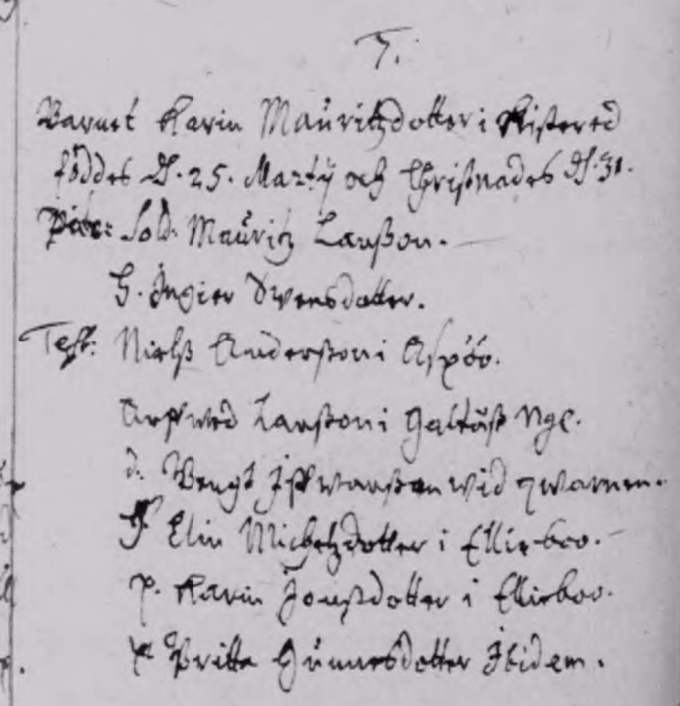 7.
Barnet Karin Mauritzdotter i Kistered
föddes d. 25. Martij och Christnades d. 31.
Pat: Sold. Mauritz Larsson.
H. Ingier Swensdotter.
Test: Nielss Andersson i Aspöö.
Arfwed Larsson i Galtåss
d. Bengt Iffwarsson wid qwarnen.
H Elin Michelzdotter i Ellieboo.
p. Karin Jonssdotter i Ellieboo.
p Britta Gunnesdotter Ibidem.